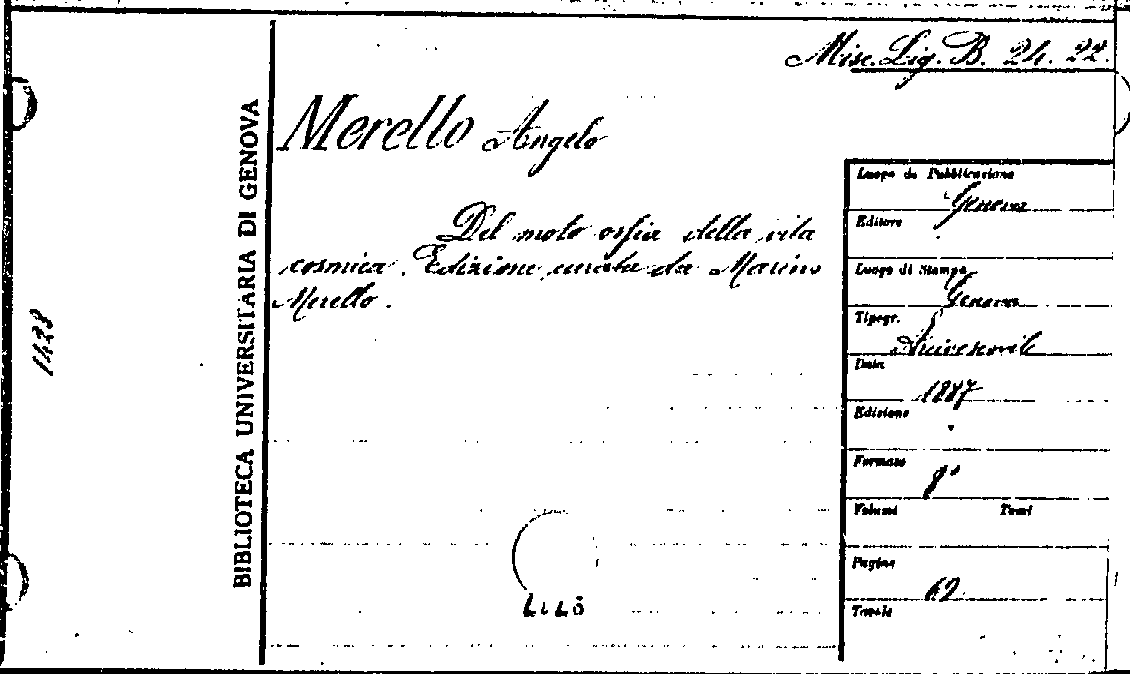 Misc. Lig. B. 24. 22.
Merello Angelo
Del moto ossia della vita
cosmica. Edizione curata da Marino
Merello.
BIBLIOTECA UNIVERSITARIA DI GENOVA
1428
Luogo di Pubblicazione
Genova
Editore
Luogo di Stampa
Genova
Tipogr.
Arcivescovile
Data
1887
Edizione
Formato
8°
Volumi Tomi
Pagine
62
Tavole